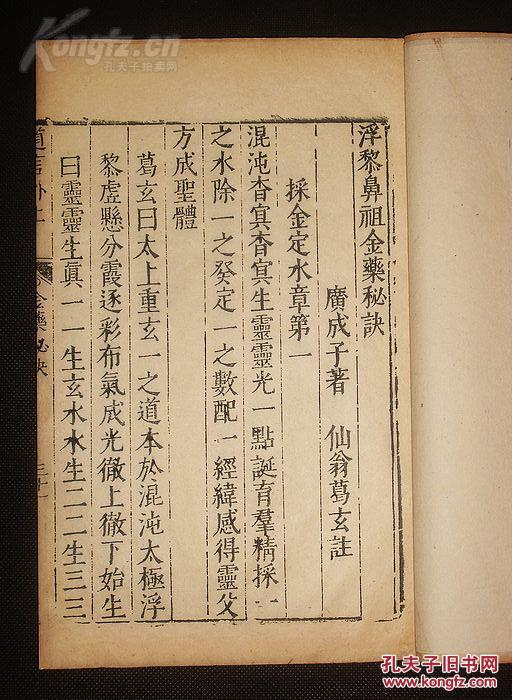 浮黎鼻祖金藥秘訣
廣成子著　仙翁葛玄註
採金定水章第一
混沌杳冥杳冥生靈靈光一點誕育羣精採一
之水除一之癸定一之數配一經緯感得靈父
方成聖體
葛玄曰太上重玄一之道本於混沌太極浮
黎虛懸分霞逐彩布氣成光徹上徹下始生
曰靈靈生眞一一生玄水水生二二生三三
道言外二
金藥秘訣
Kongfz.cn
孔夫子拍卖网
孔夫子旧书网
KONGFZ.COM